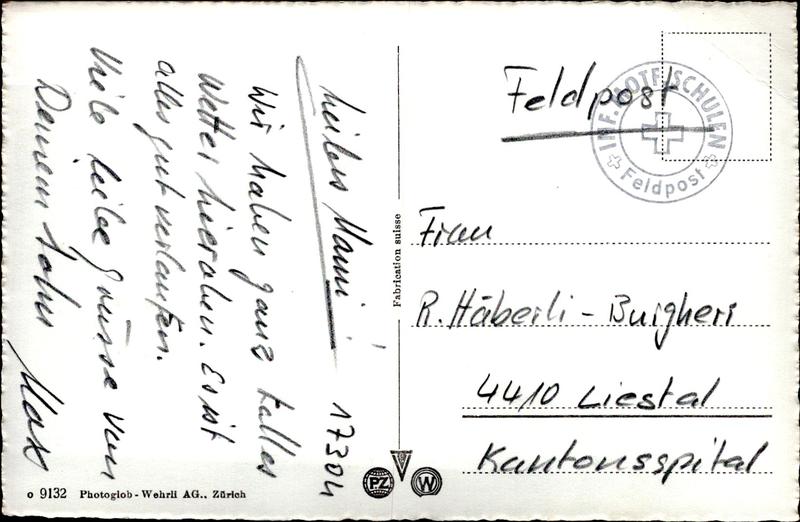 Liebes Mami! 17304
Wir haben ganz tolles
Wetter hieroben. Es ist
alles gut verlaufen.
Viele liebe Grüsse von
Deinem Sohn Max
Feldpost
INF. MOTF. SCHULEN
Feldpost
Frau
R. Häberli-Buigheri
4410 Liestal
Kantonsspital
Fabrication suisse
PZ W
o 9132 Photoglob-Wehrli AG., Zürich